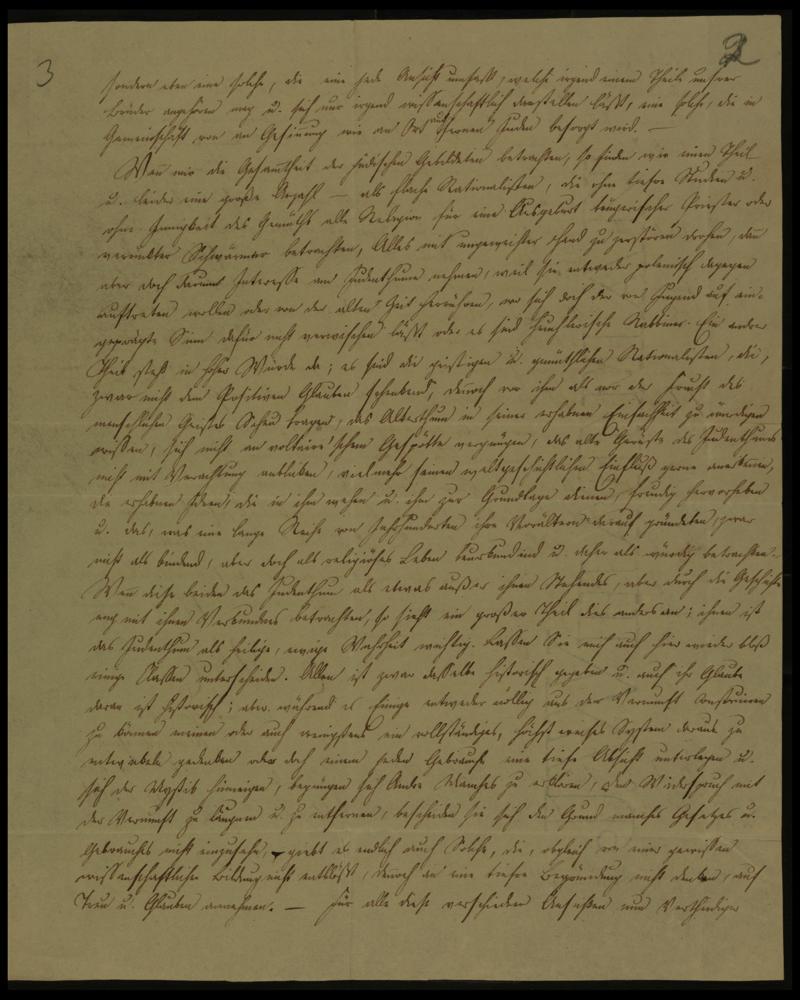 3
2
sondern eben eine solche, die eine jede Ansicht umfaßt, welche irgend einem Theile unsrer
Brüder angehören mag u. sich nur irgend wissenschaftlich darstellen läßt, eine solche, die in
Gemeinschaft von an Gesinnung wie an Ort auch fernen Juden besorgt wird. —
Wenn wir die Gesamtheit der jüdischen Gebildeten betrachten, so finden wir einen Theil
u. leider eine große Anzahl — als flache Rationalisten, die ohne tiefere Studien u.
ohne Innigkeit des Gemüths alle Religion für eine Ausgeburt trügerischer Priester oder
verrückter Schwärmer betrachten, Alles mit ungeweihter Hand zu zerstören drohen, dann
aber doch Interesse am Judenthume nehmen, weil sie entweder polemisch dagegen
auftreten wollen oder von der alten Zeit herrühren, wo sich doch der von Jugend auf ein-
geprägte Sinn dafür nicht verwischen läßt oder es sind heuchlerische Rabbiner. Ein andrer
Theil steht in hoher Würde da; es sind die geistigen u. gemüthlichen Rationalisten, die,
zwar nicht dem Positiven Glauben schenkend, dennoch vor ihm als vor der Frucht des
menschlichen Geistes Scheu tragen, das Alterthum in seiner erhabnen Einfachheit zu würdigen
wissen, sich nicht an voltaire'schem Gespötte vergnügen, das alte Gerüste des Judenthums
nicht mit Verachtung anblicken, vielmehr seinen weltgeschichtlichen Einfluß gerne anerkennen,
die erhabnen Ideen, die in ihm wehen u. ihm zur Grundlage dienen, freudig hervorheben
u. das, was eine lange Reihe von Jahrhunderten ihre Voreltern darauf gründeten, zwar
nicht als bindend, aber doch als religiöses Leben beurkundend u. daher als würdig betrachten.
Wenn diese beiden das Judenthum als etwas außer ihnen Stehendes, aber durch die Geschichte
eng mit ihnen Verbundnes betrachten, so sieht ein großer Theil dies anders an; ihnen ist
das Judenthum als heilige, ewige Wahrheit wichtig. Lassen Sie mich auch hier wieder bloß
einige Klassen unterscheiden. Allen ist zwar dasselbe historisch gegeben u. auch ihr Glaube
daran ist historisch; aber während es Einige entweder völlig aus der Vernunft construiren
zu können meinen oder auch wenigstens ein vollständiges, höchst weises System daraus zu
entwickeln gedenken oder doch einem jeden Gebrauch eine tiefe Absicht unterlegen u.
sich der Mystik hinneigen, begnügen sich Andre Manches zu erklären, den Widerspruch mit
der Vernunft zu läugnen u. zu entfernen, bescheiden sie sich den Grund manches Gesetzes u.
Gebrauches nicht einzusehn, giebt es endlich auch Solche, die, obgleich von einer gewissen
wissenschaftlichen Bildung nicht entblößt, dennoch an eine tiefere Begründung nicht denken, auf
Treu u. Glauben annehmen. — Für alle diese verschiednen Ansichten nun Vertheidiger